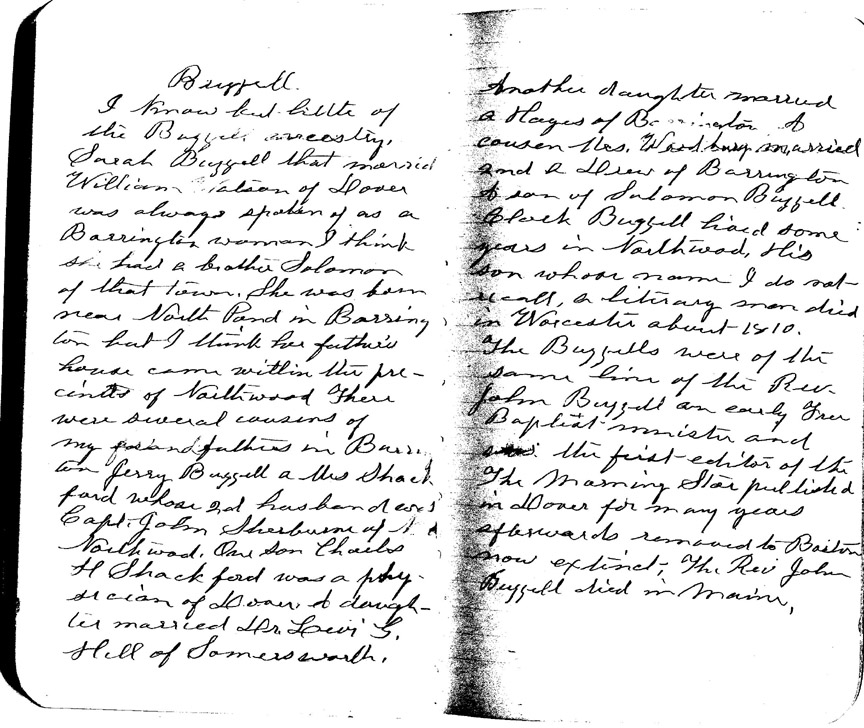 Buzzell.
I know but little of
the Buzzell ancestry.
Sarah Buzzell that married
William Watson of Dover
was always spoken of as a
Barrington woman I think
she had a brother Solomon
of that town. She was born
near North Pond in Barring
ton but I think her father's
house came within the pre-
cincts of Northwood There
were several cousins of
my grandfathers in Barring
ton Jerry Buzzell a Mrs Shack
ford whose 2d husband was
Capt. John Sherburne of
Northwood. One son Charles
H Shackford was a phy-
sician of Dover. A daugh-
ter married Dr. Levi G.
Hill of Somersworth.
Another daughter married
a Hayes of Barrington A
cousen Mrs. Woodbury married
2nd a Drew of Barrington
A son of Solomon Buzzell
Clock Buzzell lived some
years in Northwood, His
son whose name I do not
recall, a literary man died
in Worcester about 1810.
The Buzzells were of the
same line of the Rev.
John Buzzell an early Free
Baptist minister and
the first editor of the
The Morning Star published
in Dover for many years
afterwards removed to Boston
now extinct, The Rev John
Buzzell died in Maine,